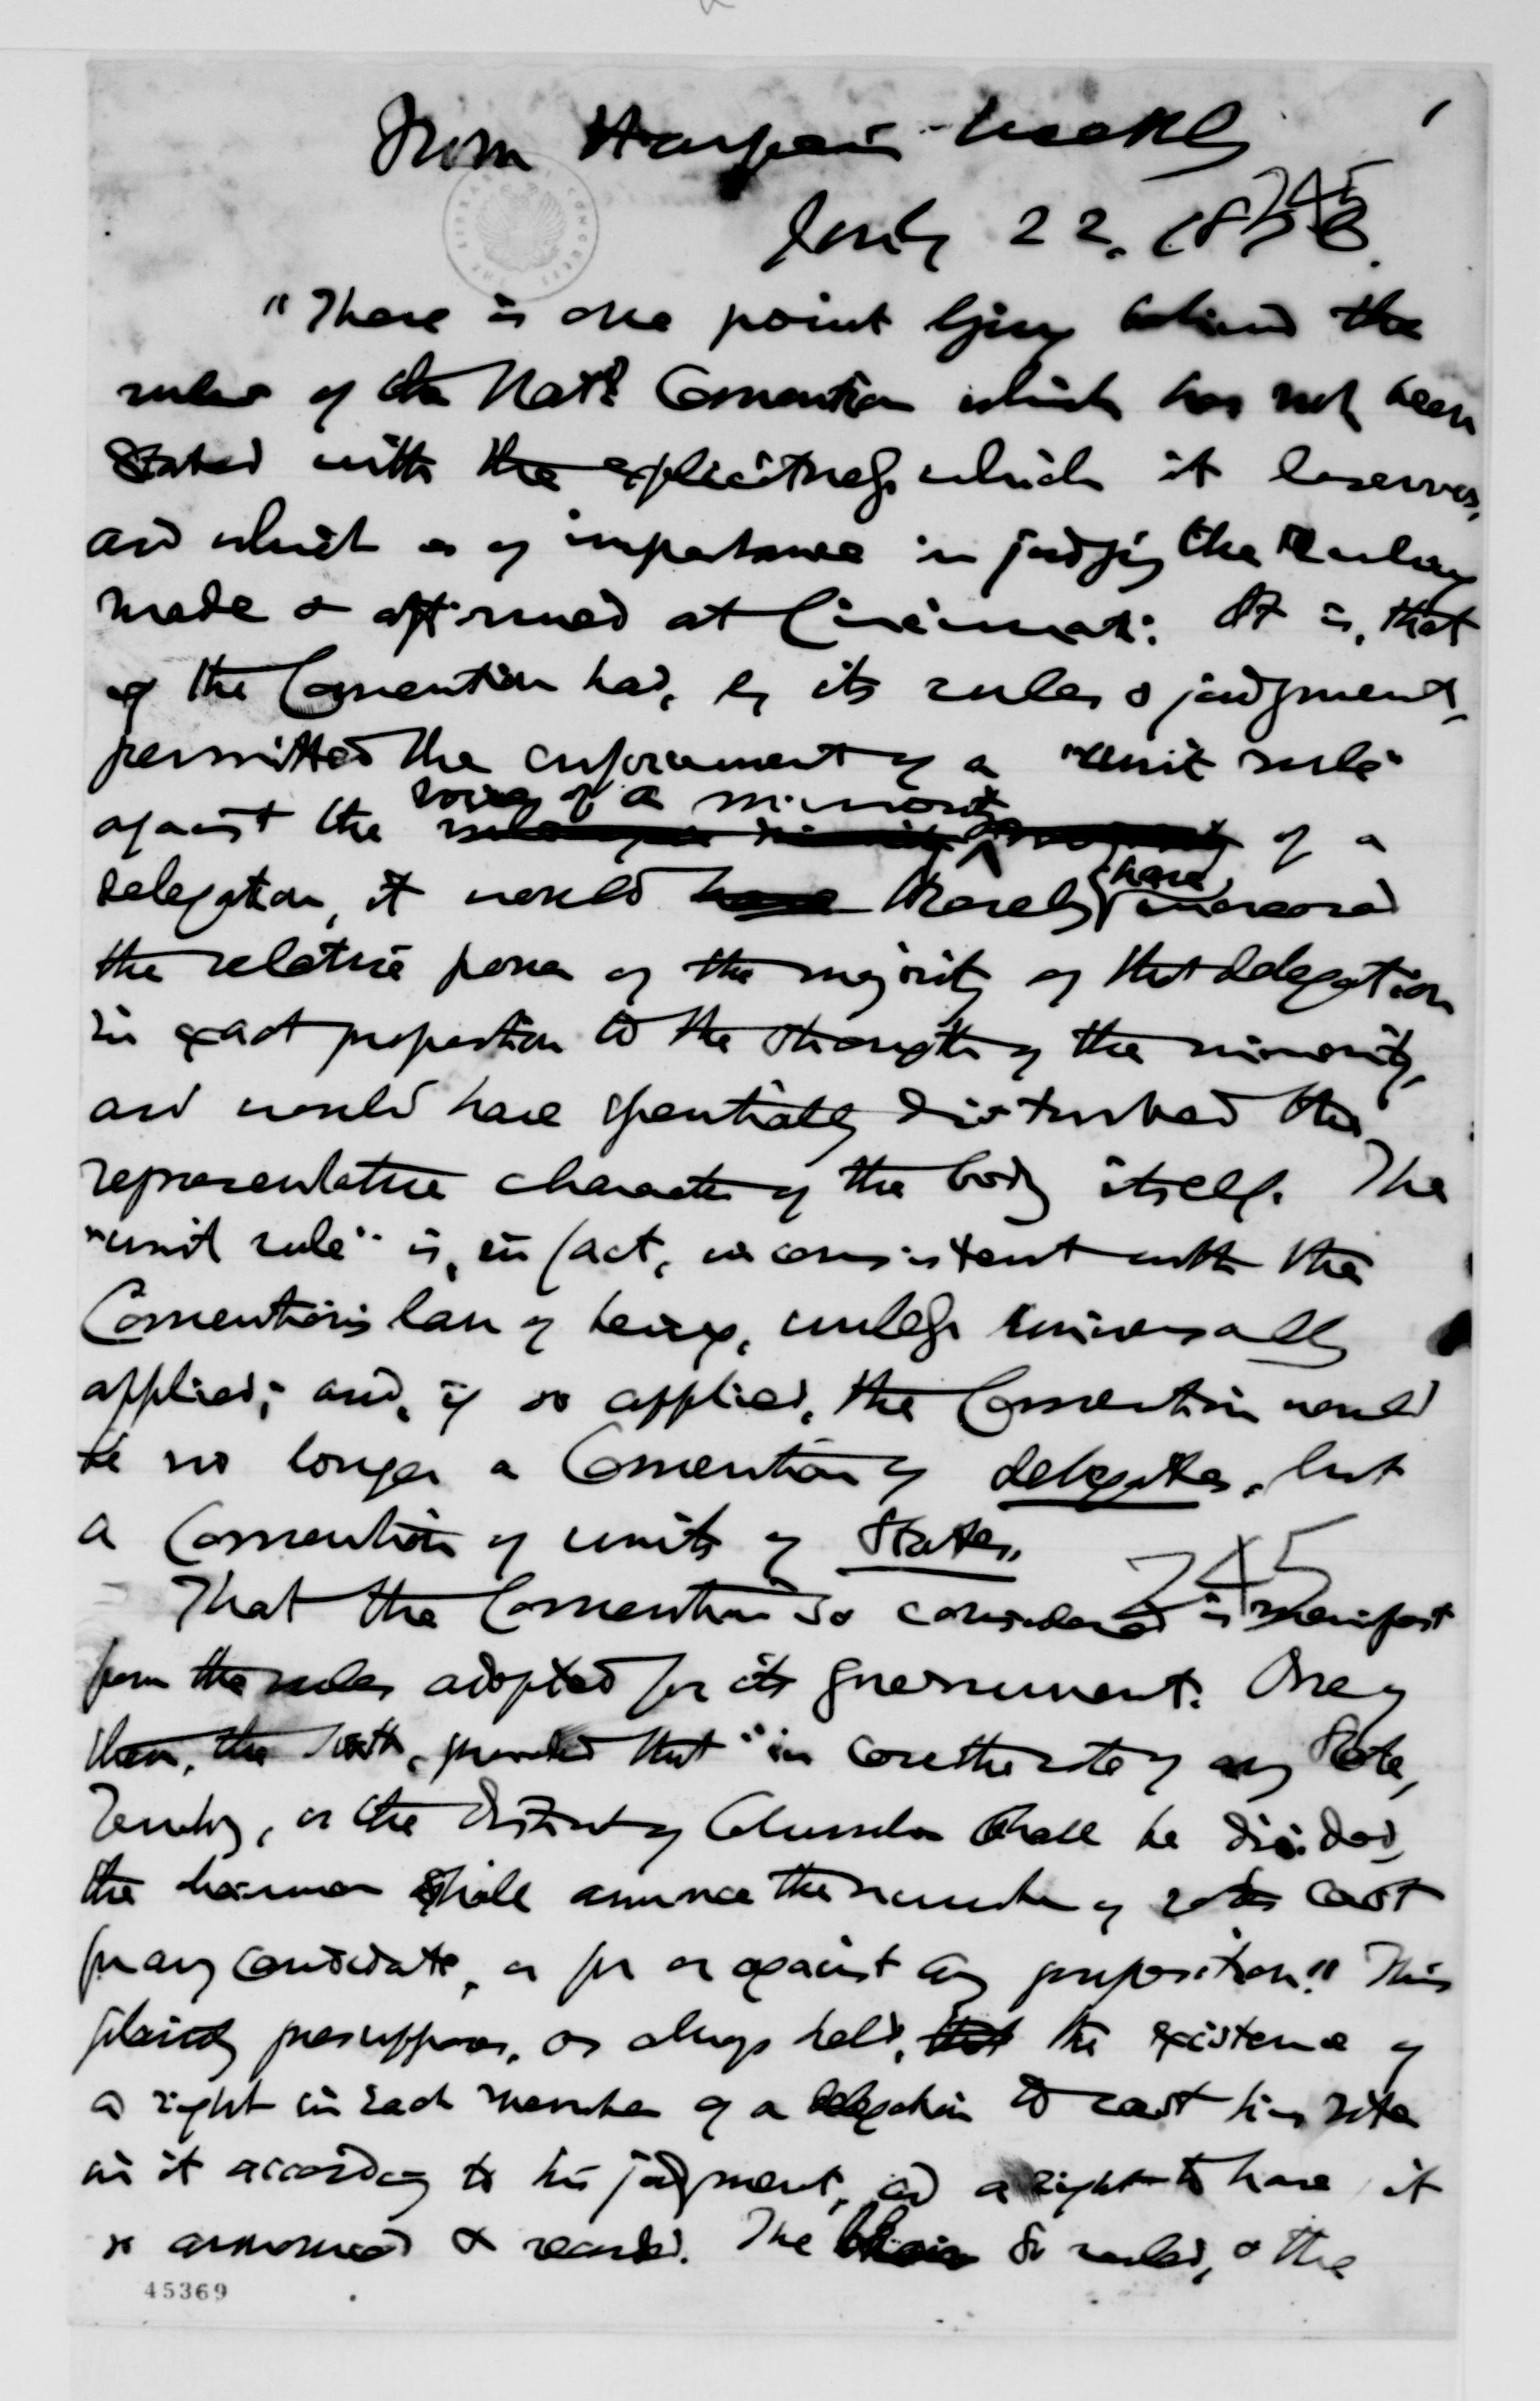 From Harper's Weekly
1
July 22. 1876.
245
"There is one point lying behind the
rules of the Nat'l Convention which has not been
stated with the explicitness which it deserves,
and which is of importance in judging the ruling
made & affirmed at Cincinnati. It is, that
if the Convention had, by its rules & judgment,
permitted the enforcement of a "unit rule"
against the voice of a minority of a
delegation, it would have thereby have increased
the relative power of the majority of that delegation
in exact proportion to the strength of the minority,
and would have essentially disturbed the
representative character of the body itself. The
"unit rule" is, in fact, inconsistent with the
Convention's law of being, unless universally
applied; and, if so applied, the Convention would
be no longer a Convention of delegates, but
a Convention of units of States.
245
That the Convention so considered is manifest
from the rules adopted for its government. One of
them, the sixth, provided that "in case the vote of any State,
Territory, or the District of Columbia shall be divided,
the chairman shall announce the number of votes cast
for any candidate, or for or against any proposition." This
plainly presupposes, as always held, that the existence of
a right in each member of a delegation to cast his vote
in it according to his judgment, and a right to have it
so announced & recorded. The Chair so ruled, & the
45369